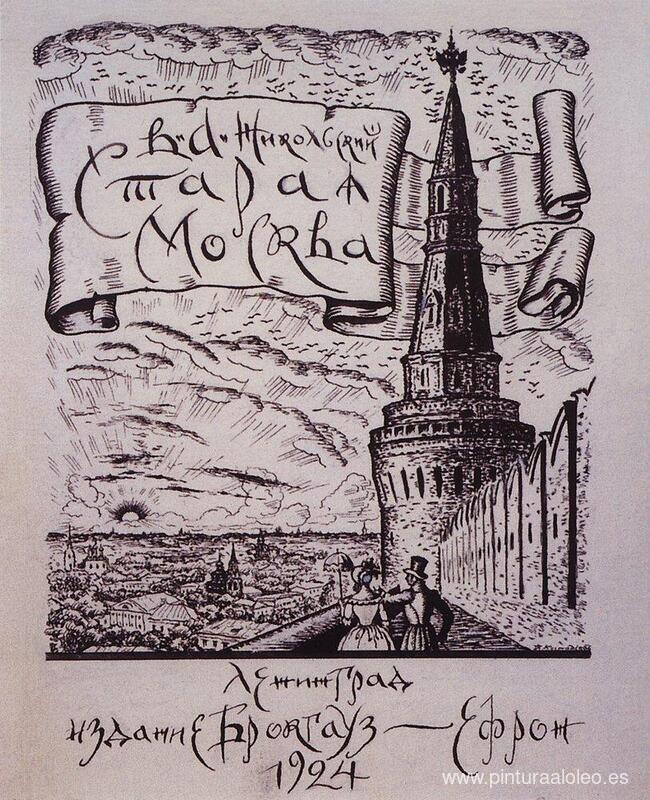 В. А. Никольский
Старая
Москва
Ленинград
издание Брокгауз — Ефрон
1924
www.pinturaaloleo.es